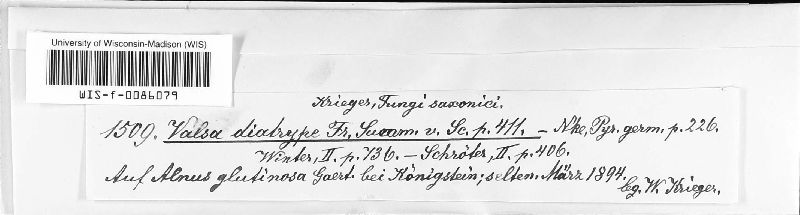 University of Wisconsin-Madison (WIS)
WIS-f-0086079
Krieger, Fungi saxonici.
1509. Valsa diatrype Fr. Summ. v. Sc. p. 411. – Nke, Pyr. germ. p. 226.
Winter, II. p. 736. – Schröter, II. p. 406.
Auf Alnus glutinosa Gaert. bei Königstein; selten. März 1894.
leg. W. Krieger.